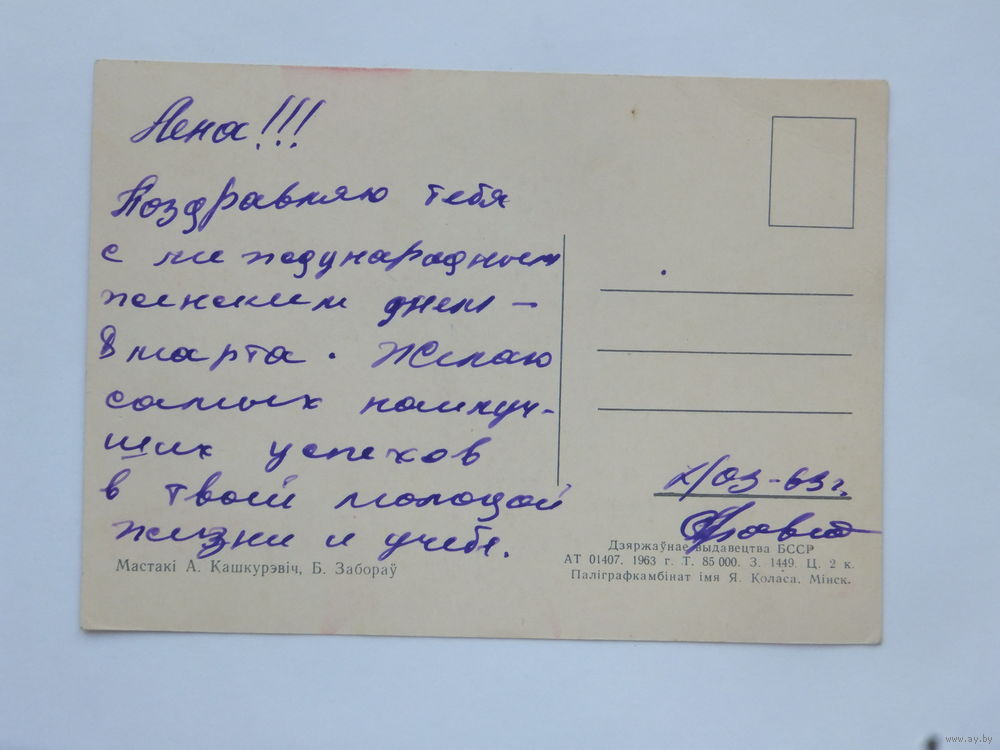 Лена!!!
Поздравляю тебя
с международным
женским днем –
8 марта. Желаю
самых наилуч-
ших успехов
в твоей молодой
жизни и учебе.
/03-63г.
Мастакі А. Кашкурэвіч, Б. Забораў
Дзяржаўнае выдавецтва БССР
АТ 01407. 1963 г. Т. 85 000. З. 1449. Ц. 2 к.
Паліграфкамбінат імя Я. Коласа. Мінск.
www.ay.by